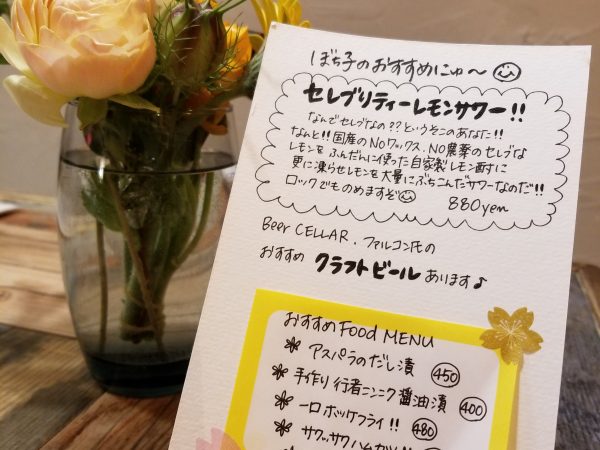 ぼち子のおすすめにゅ〜
セレブリティーレモンサワー!!
なんでセレブなの??というそこのあなた!!
なんと!!国産のNOワックス、NO農薬のセレブな
レモンをふんだんに使った自家製レモン酎に
更に凍らせレモンを大量にぶちこんだサワーなのだ!!
ロックでものめますぞ
880yen
Beer CELLAR、ファルコン氏の
おすすめ クラフトビール あります♪
おすすめ Food MENU
アスパラのだし漬 450
手作り行者ニンニク醤油漬 400
一口ホッケフライ!! 480
サクッサクハムカツ!!